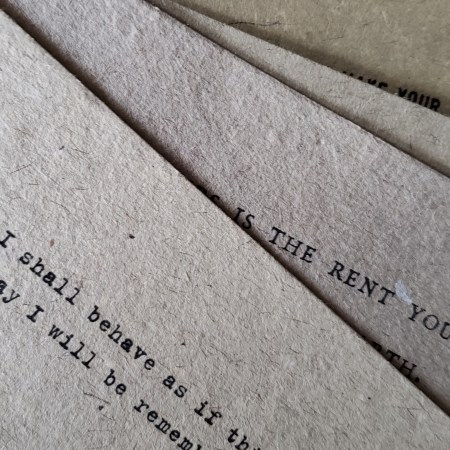 MAKE YOUR
IS THE RENT YOU
RTH.
I shall behave as if thi
ay I will be rememb